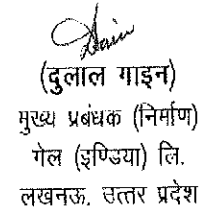 (दुलाल गाइन)
मुख्य प्रबंधक (निर्माण)
गेल (इण्डिया) लि.
लखनऊ, उत्तर प्रदेश